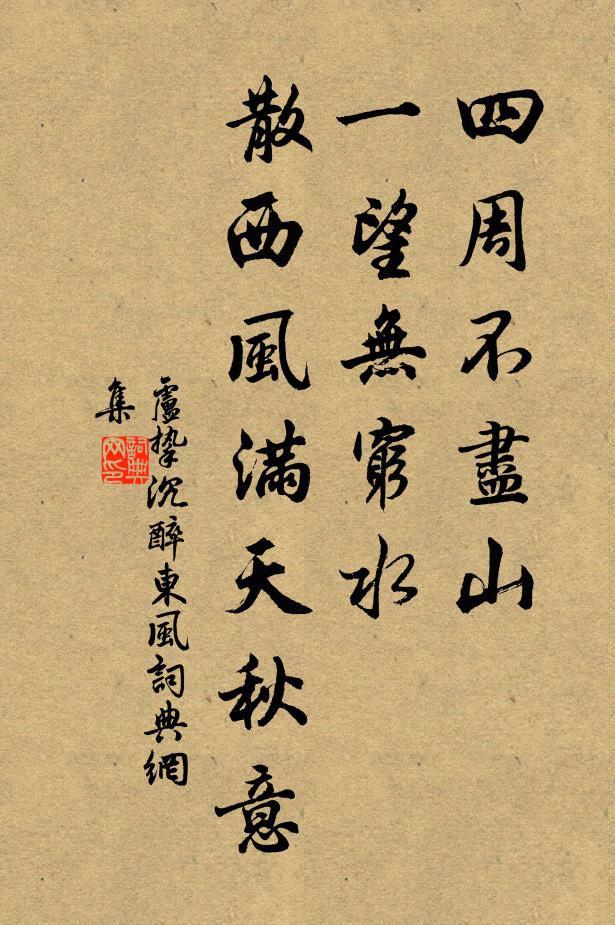 四周不盡山
一望無窮水
散西風滿天秋意
盧摯沉醉東風詞典網
集
詞典
网印